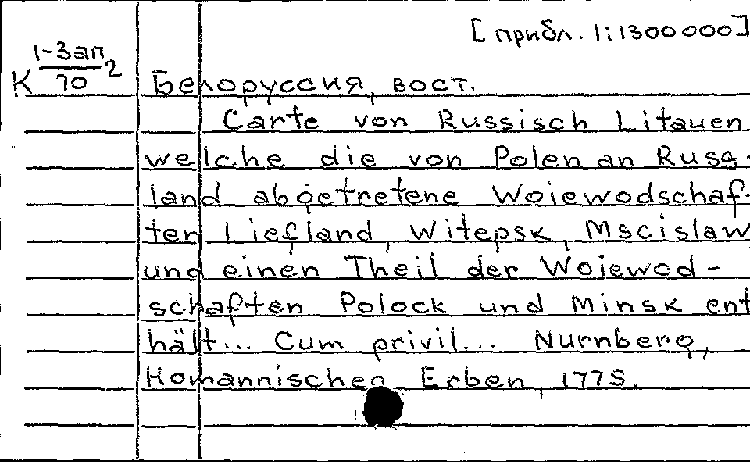 [прибл. 1:1300000]
К 1-Зап/70 2
Белоруссия, вост.
Carte von Russisch Litauen
welche die von Polen an Russ-
land abgetretene Woiewodschaf-
ten Liefland, Witepsk, Mscislaw
und einen Theil der Woiewod-
schaften Polock und Minsk ent
hält... Cum privil... Nurnberg,
Homannischen Erben, 1775.